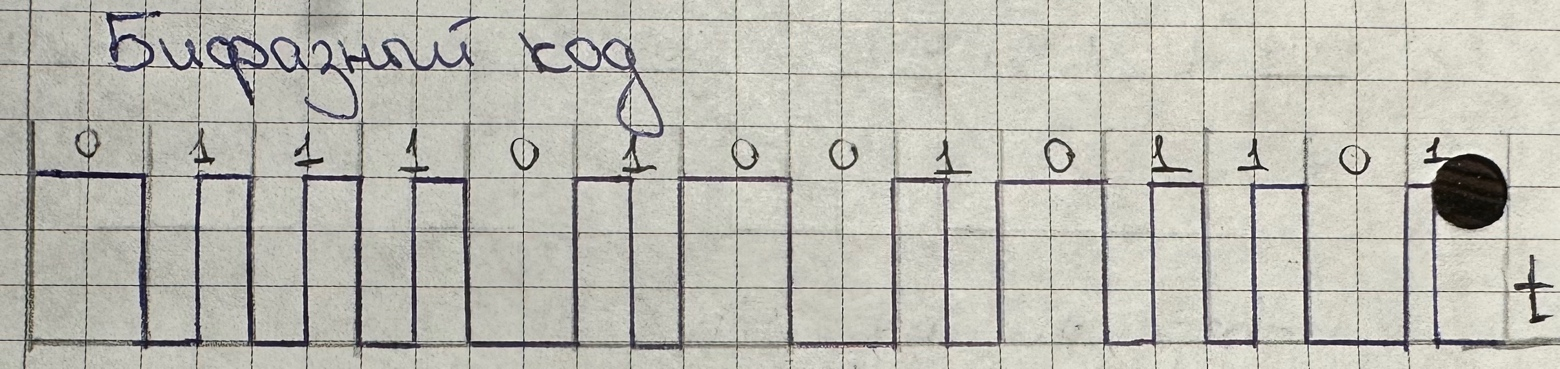 Бифазный код
0 1 1 1 0 1 0 0 1 0 1 1 0 1
t